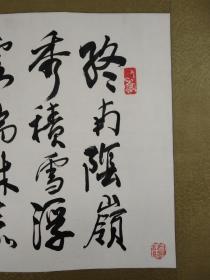 终南陰嶺
秀積雪浮
雲端林表